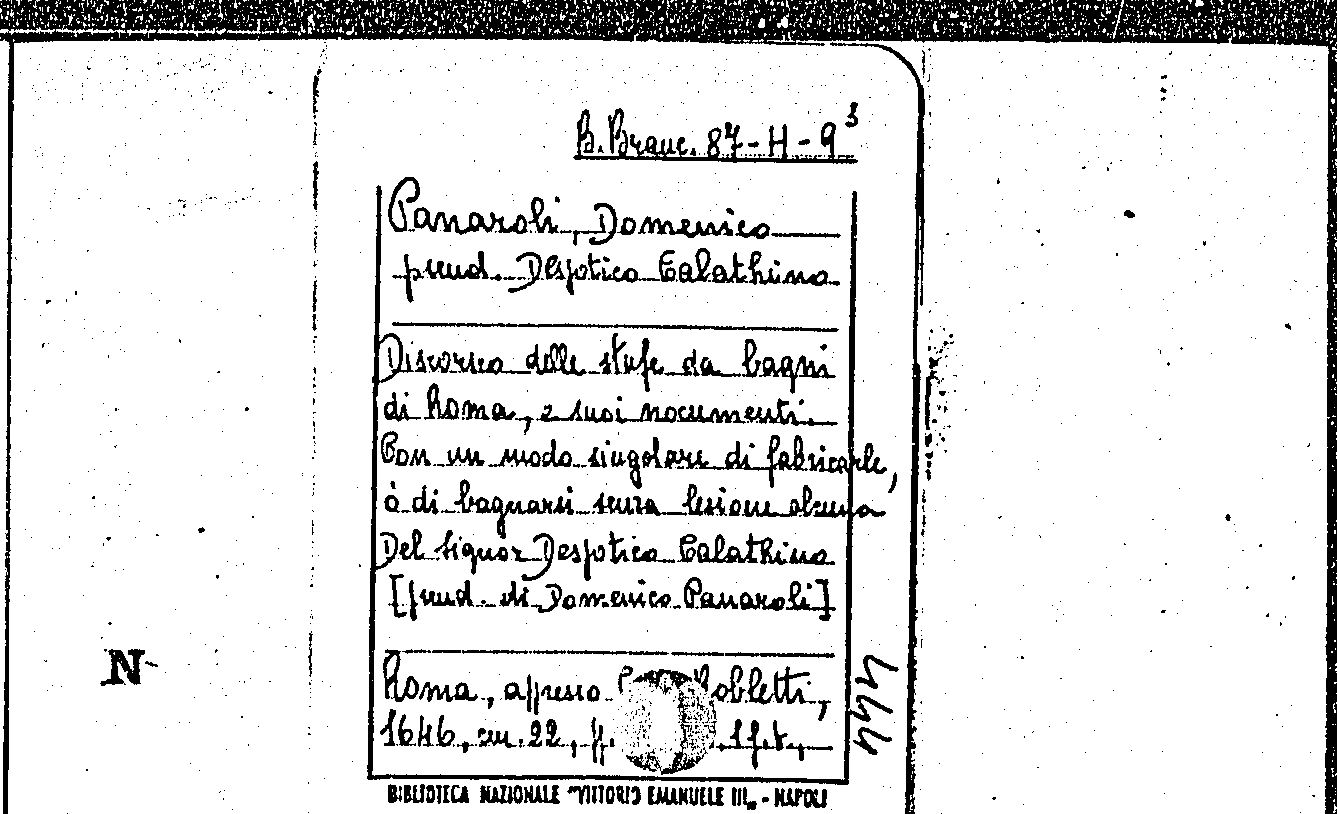 B. Branc. 87 - H - 9³
Panaroli, Domenico
pseud. Despotico Calathino
Discorso delle stufe da bagni
di Roma, e suoi nocumenti.
Con un modo singolare di fabricarle,
ò di bagnarsi senza lesione alcuna
Del signor Despotico Calathino
[pseud. di Domenico Panaroli]
Roma, appresso Robletti,
1646, cm. 22, 1 f.t.,
444
N
BIBLIOTECA NAZIONALE "VITTORIO EMANUELE III„ - NAPOLI